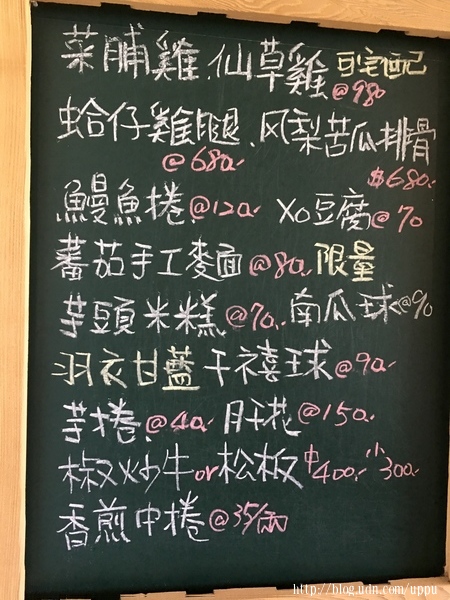 菜脯雞、仙草雞 可宅配 @980
蛤仔雞腿、风梨苦瓜排骨
@680. $680.
鰻魚捲@120. XO豆腐@70
蕃茄手工麥面@80. 限量
芋頭米糕@70. 南瓜球@90
羽衣甘藍千禧球@90.
芋捲@40. 肝花@150.
椒炒牛or松板 中400. 小300.
香煎中捲@35/兩
http://blog.udn.com/uppu